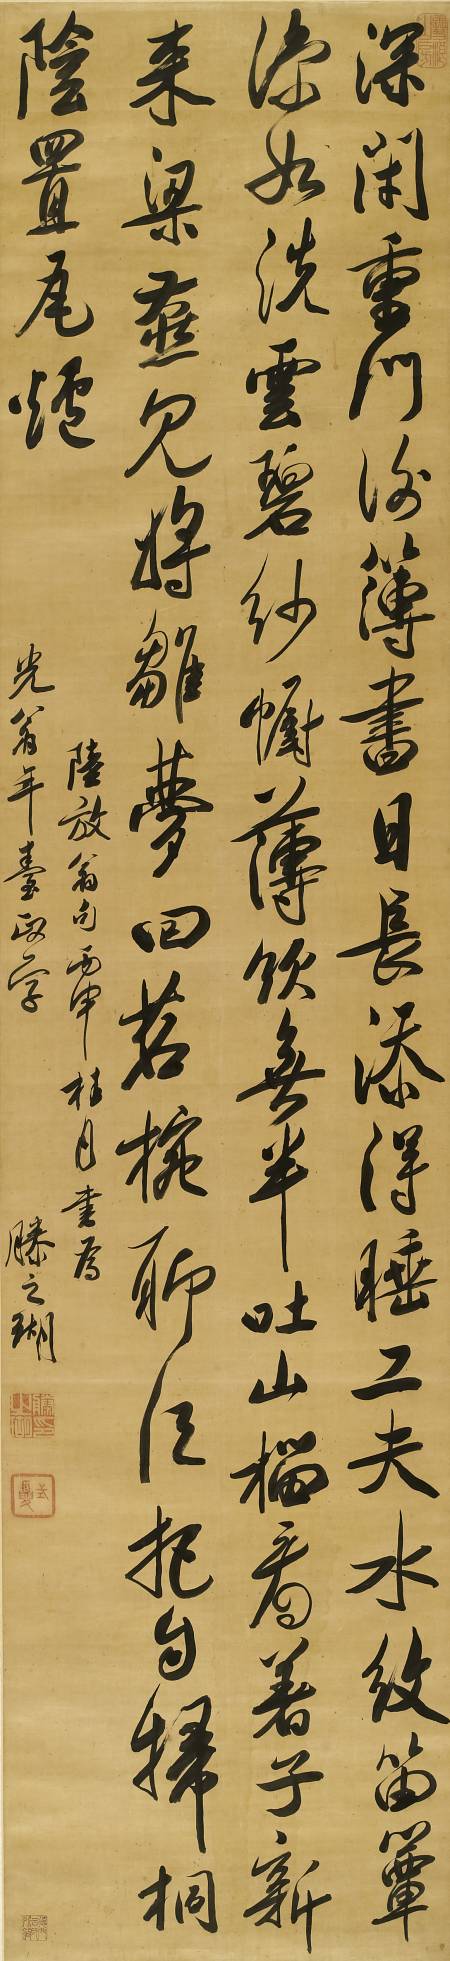 深閉重門謝簿書日長添得睡工夫水紋笛簟
涼如洗雲碧紗幮薄欲無半吐山榴看著子新
來梁燕見將雛夢回茗椀聊須把自掃桐
陰置瓦爐
陸放翁句丙申桂月書為
光翁年臺政字
滕之瑚